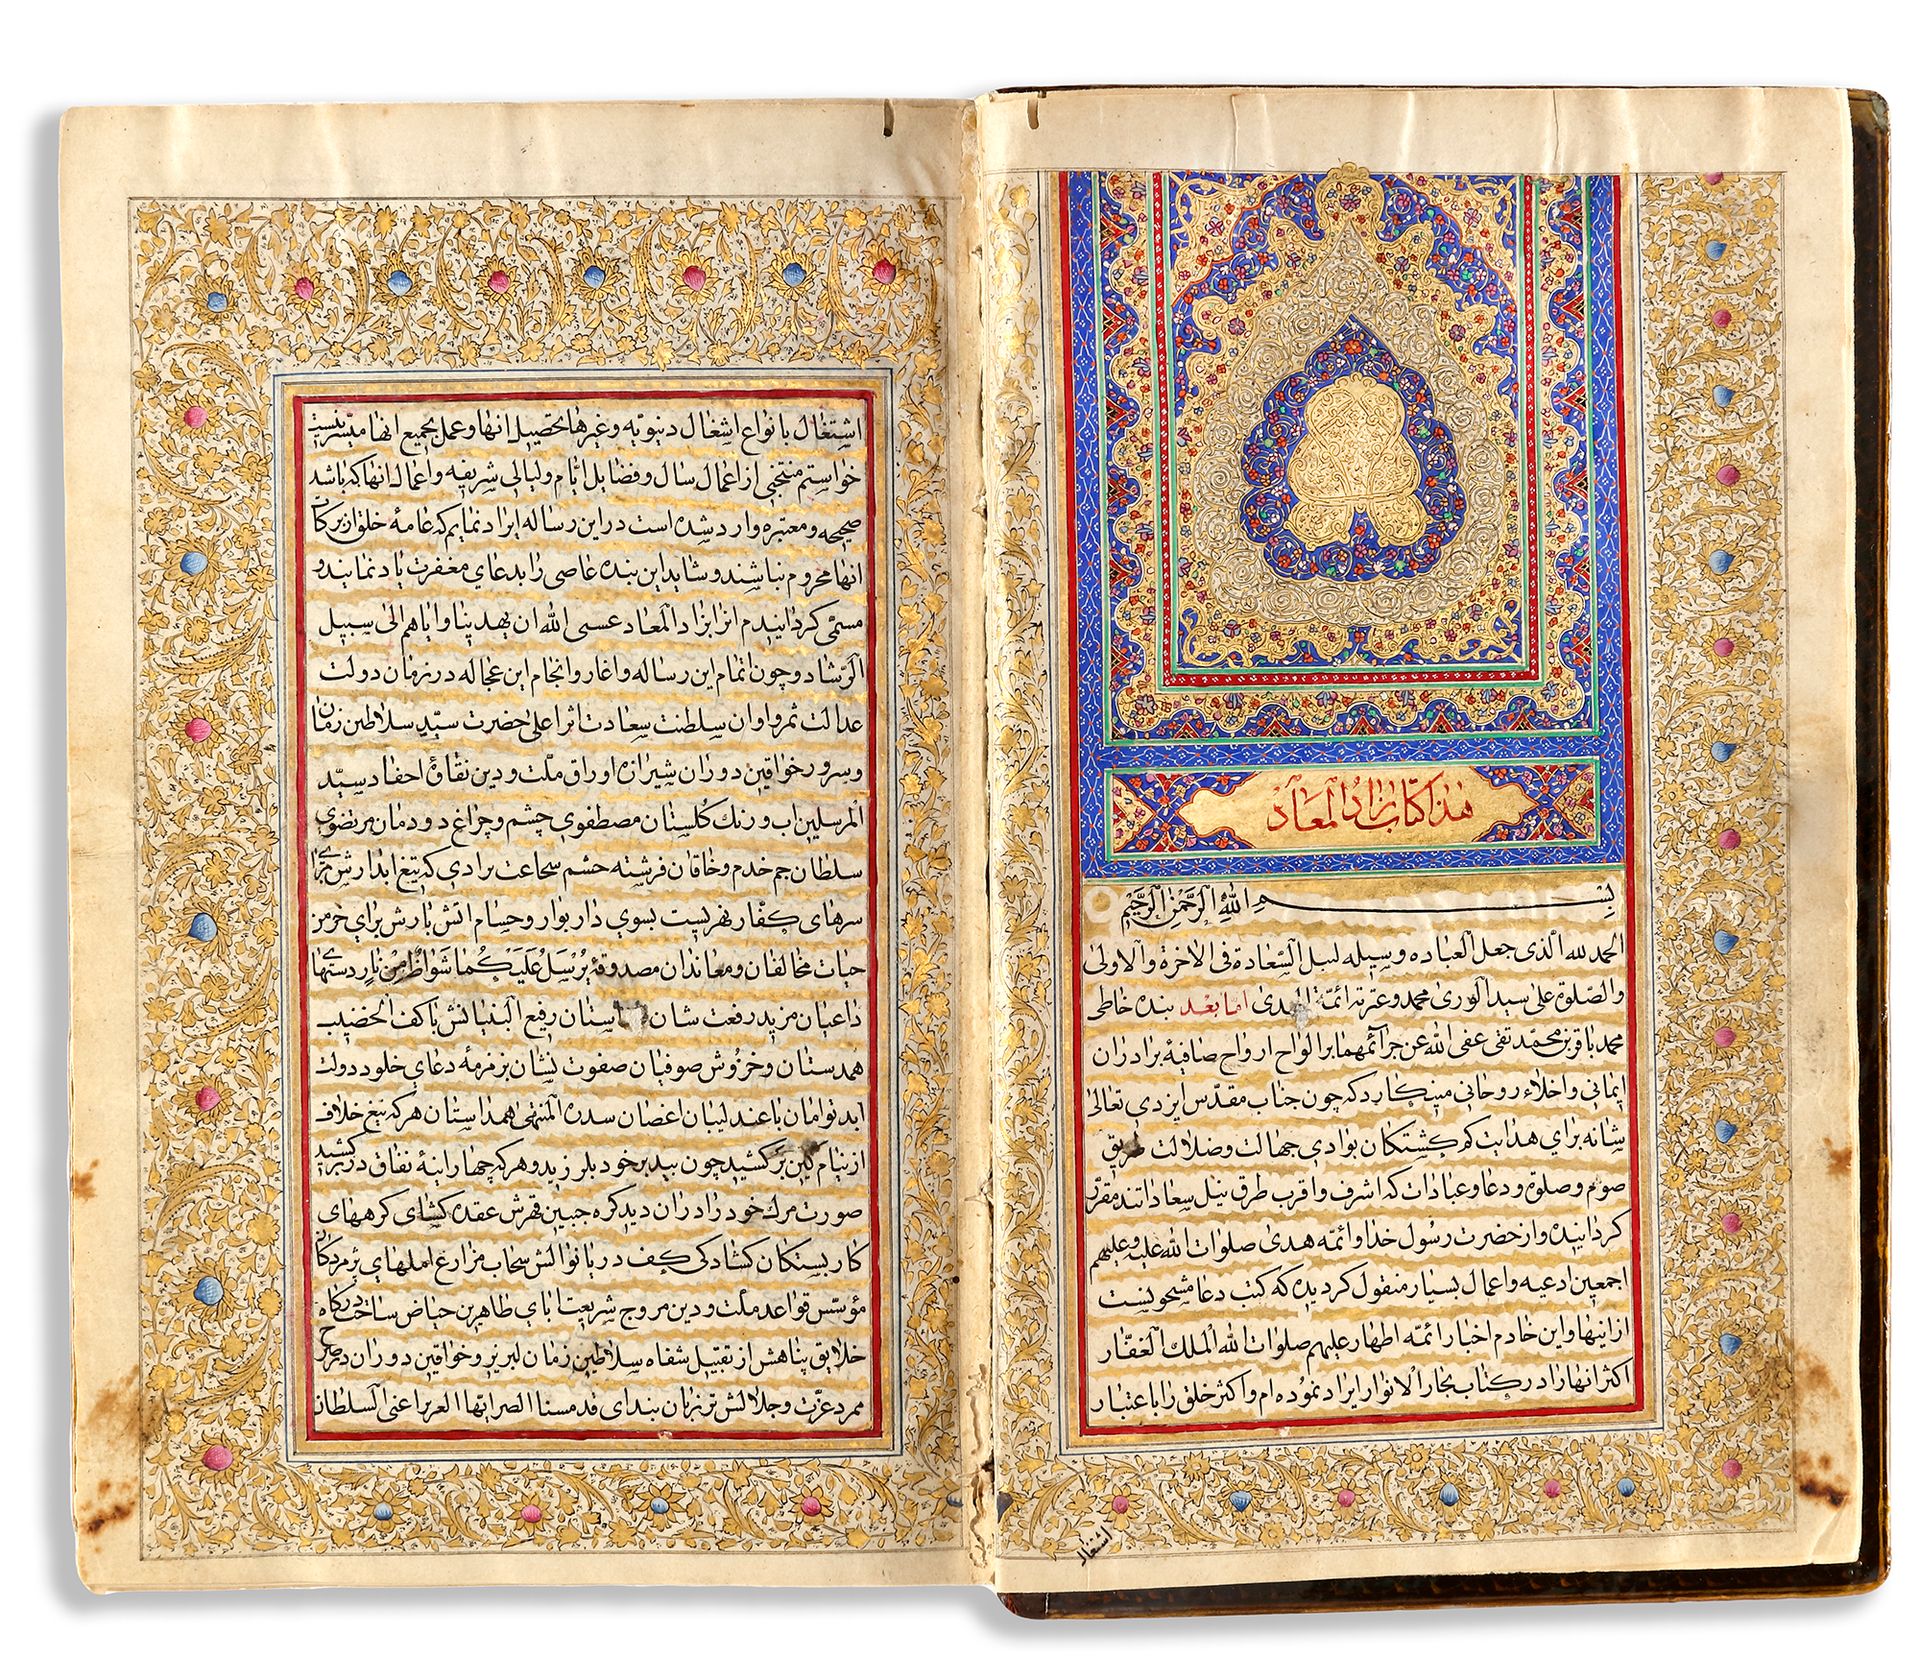 هذا کتاب زاد المعاد
بسم الله الرحمن الرحیم
الحمد لله الذی جعل العباده وسیله لنیل السعادة فی الاخرة والاولی
والصلوة علی سید الوری محمد وعترته ائمة الهدی اما بعد بنده خاطی
محمد باقر بن محمد تقی عفی الله عن جرآئمهما بر الواح ارواح صافیۀ برادران
ایمانی واخلاء روحانی مینکارد که چون جناب مقدّس ایزدی تعالی
شانه برای هدایت کم کشتکان بوادی جهالت وضلالت طریق
صوم وصلوة ودعا وعبادات که اشرف واقرب طرق نیل سعاداتند مقرّر
کردانیده واز حضرت رسول خدا وائمّه هدی صلوات الله علیه وعلیهم
اجمعین ادعیه واعمال بسیار منقول کردیده که کتب دعا مشحونست
از انها واین خادم اخبار ائمّه اطهار علیهم صلوات الله الملک الغفّار
اکثر انها را در کتاب بحار الانوار ایراد نموده ام واکثر خلق را باعتبار
اشتغال
اشتغال بانواع اشغال دنیویّه وغیرها تحصیل انها وعمل بجمیع انها میسّر نیست
خواستم منتخبی از اعمال سال وفضایل ایّام ولیالی شریفه واعمال انها که باشد
صحیحه ومعتبره وارد شده است در این رساله ایراد نمایم که عامۀ خلق از برکات
انها محروم نباشند وشاید این بنده عاصی را بدعای مغفرت یاد نمایند و
مسمّی کردانیدم انرا بزاد المعاد عسی الله ان یهدینا وایاهم الی سبیل
الرّشاد وچون اتمام این رساله واغاز وانجام این عجاله در زمان دولت
عدالت ثمر واوان سلطنت سعادت اثر اعلی حضرت سیّد سلاطین زمان
وسرور خواقین دوران شیرازه اوراق ملّت ودین نقاوۀ احفاد سیّد
المرسلین اب ورنک کلستان مصطفوی چشم وچراغ دودمان مرتضوی
سلطان جم خدم وخاقان فرشته حشم شجاعت برادی که تیغ ابدارش برای
سرهای کفّار نهریست بسوی دار بوار وحسام اتش بارش برای خرمن
حیات مخالفان ومعاندان مصدوقۀ یرسل علیکما شواظ من نار دستهای
داعیان مزید رفعت شان استان رفیع البنیانش با کف الخضیب
همدستان وخروش صوفیان صفوت نشان بزمزمۀ دعای خلود دولت
ابد توامان با عندلیبان اغصان سدره المنتهی همداستان هر که تیغ خلاف
از نیام کین برکشید چون بید بر خود بلرزید وهر که چهار اینۀ نفاق در کشید
صورت مرک خود را در ان دید کره جبین قهرش عقده کشای کرههای
کار بستکان کشادکی کف دریا نوالش سحاب مزارع املهای پژمردکان
مؤسّس قواعد ملّت ودین مروج شریعت ابای طاهرین حیاض ساحت درکاه
خلایق پناهش از تقبیل شفاه سلاطین زمان لبریز وخواقین دوران در صرح
ممرد عزّت وجلالش بزبان بندای قد مسنا الضر ایها العزیز اعنی السلطان